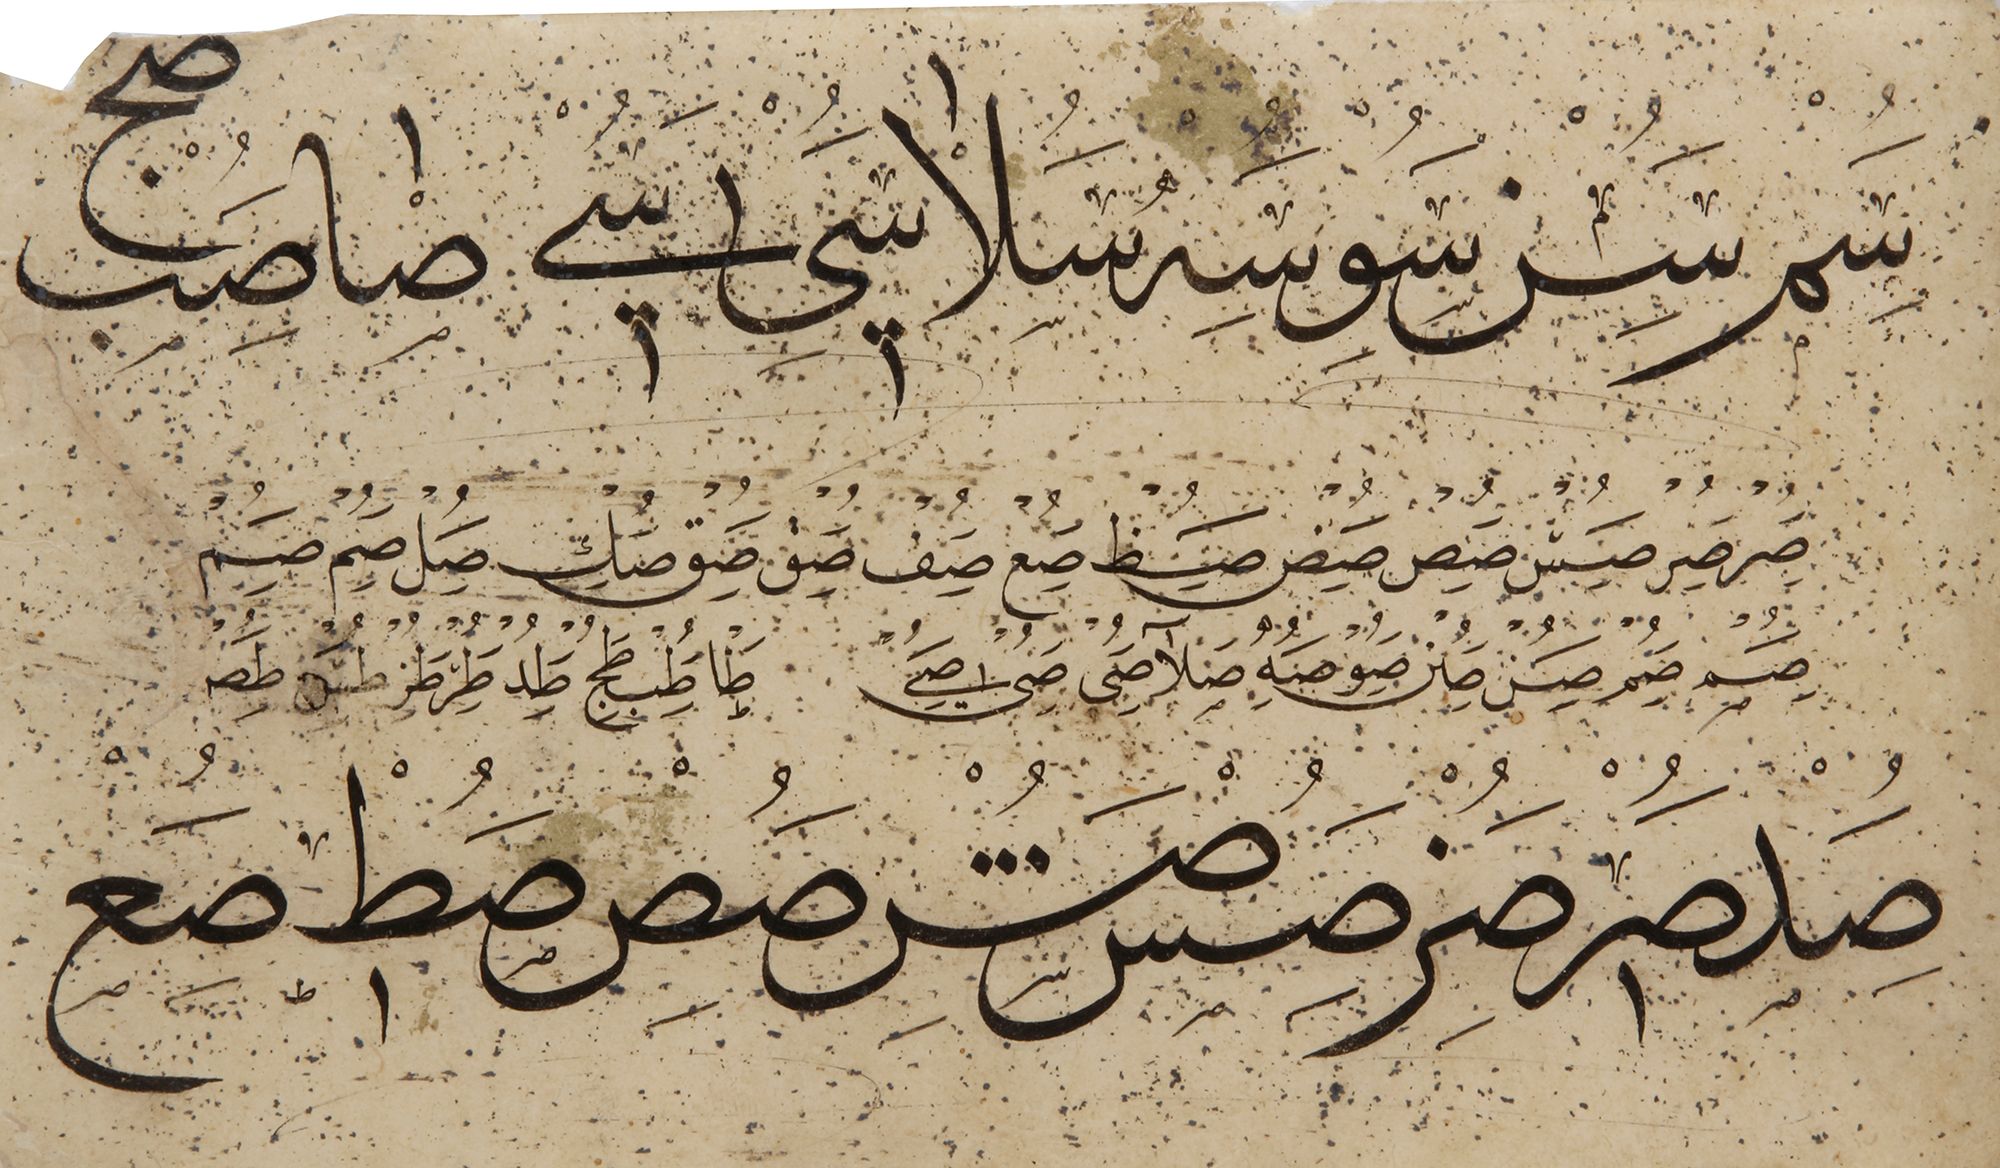 سم سن سو سه سلا سى سے صا صب صج
صر صر صس صص صض صط صع صف صق صق صك صل صم صم
صم صم صن صن صو صه صلا صى صى صے طا طب طج طد طر طز طس طص
صد صر صز صس صش صص صط صع